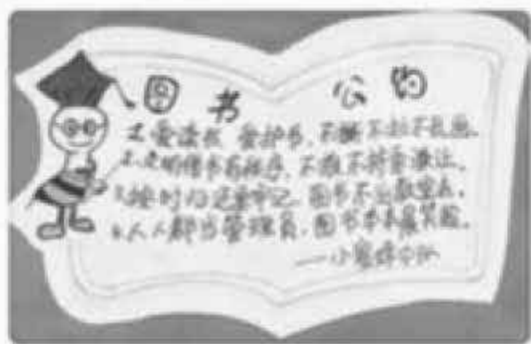 图书公约
1.爱读书 爱护书,不撕不折不乱画。
2.文明借书有秩序,不推不挤要谦让。
3.按时归还要牢记,图书不出教室去。
4.人人都当管理员,图书本本展笑脸。
——小蜜蜂中队